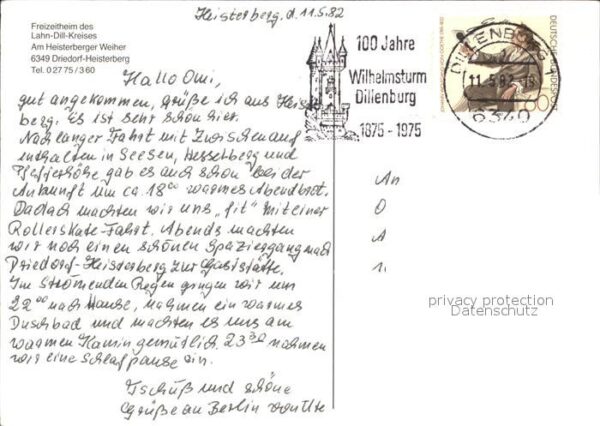 Heisterberg, d. 11.5.82
Freizeitheim des
Lahn-Dill-Kreises
Am Heisterberger Weiher
6349 Driedorf-Heisterberg
Tel. 0 27 75 / 3 60
Hallo Omi,
gut angekommen, grüße ich aus Heister-
berg. Es ist sehr schön hier.
Nach langer Fahrt mit Zwischenauf
enthalten in Seesen, Hesselberg und
gab es auch schon bei der
Ankunft um ca. 18 00 warmes Abendbrot.
Dadach machten wir uns „fit" mit einer
Rollerskate-Fahrt. Abends machten
wir noch einen schönen Spaziergang nach
Driedorf-Heisterberg zur Gaststätte.
Im strömenden Regen gingen wir um
22 00 nach Hause, nahmen ein warmes
Duschbad und machten es uns am
warmen Kamin gemütlich. 23 30 nahmen
wir eine Schlafpause ein.
Tschüß und schöne
Grüße an Berlin von Ute
100 Jahre
Wilhelmsturm
Dillenburg
1875 - 1975
DILLENBURG 1
11.-5.82.-18
6340
DEUTSCHE BUNDESPOST
60
An
O
A
1.
privacy protection
Datenschutz